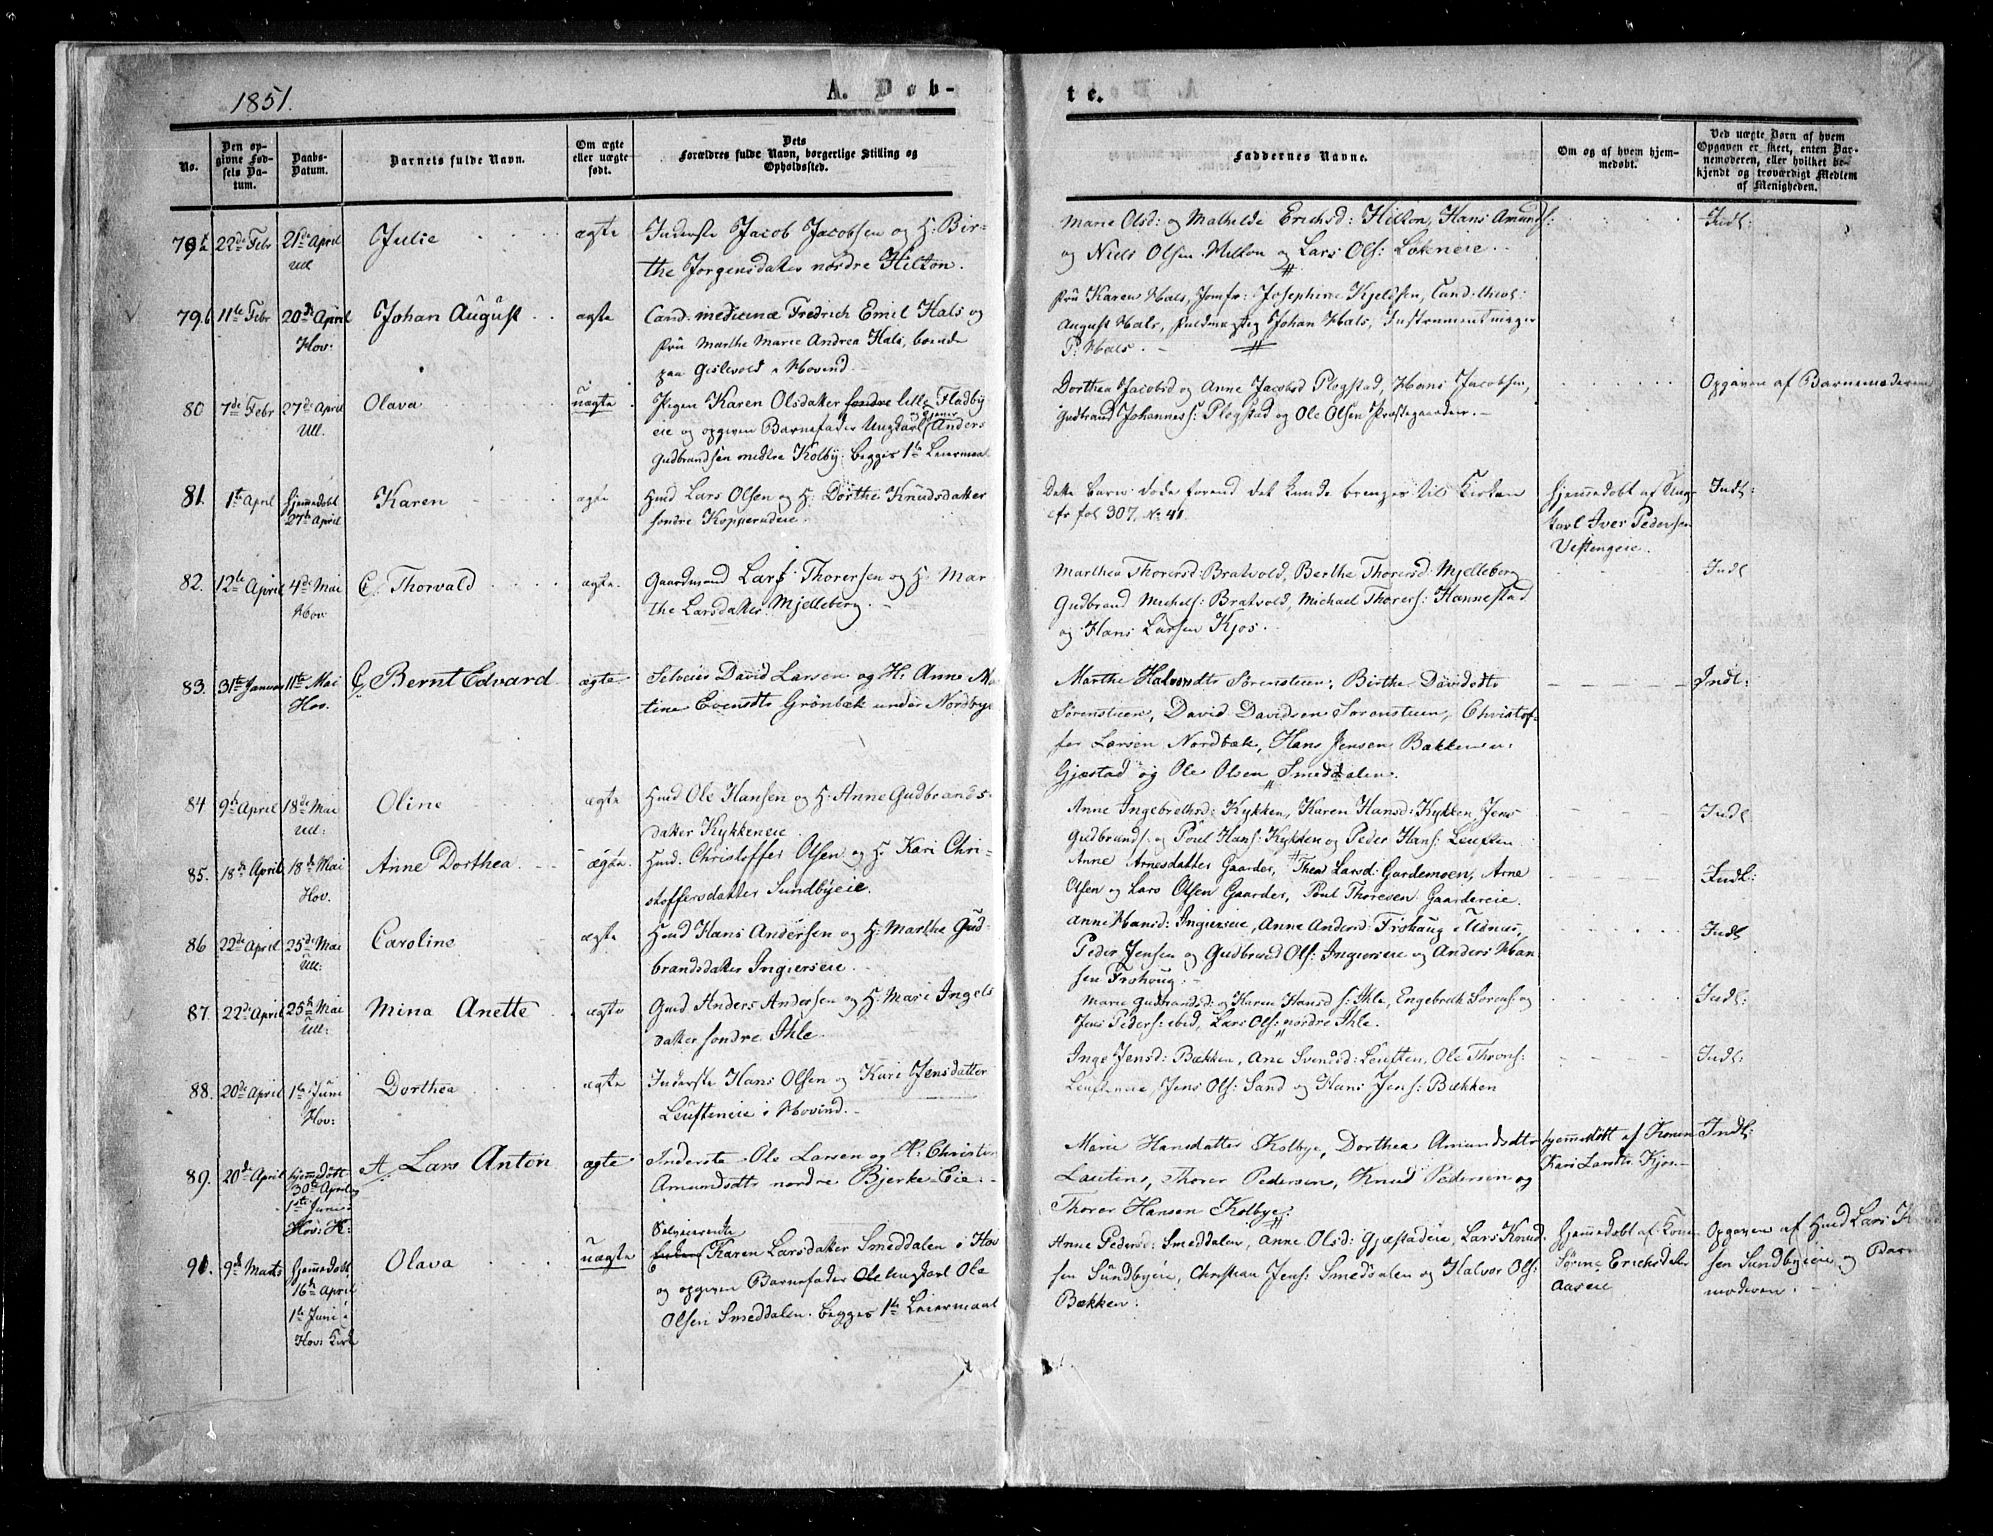 1851.
A. Døb-
te.
No.
Den opgivne Fødsels Datum.
Daabs-Datum.
Barnets fulde Navn.
Om ægte eller uægte født.
Dets Forældres fulde Navn, borgerlige Stilling og Opholdssted.
Faddernes Navne.
Om og af hvem hjemmedøbt.
Ved uægte Børn af hvem Opgaven er skeet, enten Barnemoderen, eller hvilket bekjendt og troværdigt Medlem af Menigheden.
79a 22de Febr 21de April Ull Julie ægte
Inderste Jacob Jacobsen og H: Bir-
the Jørgensdatter nordre Hilton.
Marie Olsd: og Mathilde Erichsd: Hilton, Hans Amunds:
og Niels Olsen Hilton og Lars Ols: Løkneie
Indl:
79b 11te Febr 20de April Hov: Johan August ægte
Cand: medicinæ Fredrich Emil Hals og
Fru Marthe Marie Andrea Hals, boende
paa Gislevold i Hovind.
Fru Karen Hals, Jomfr: Josephine Kjeldsen, Cand: theol:
August Hals, Fuldmægtig Johan Hals, Instrumentmager
P: Hals.
80 7de Febr 27de April Ull. Olava uægte
Pigen Karen Olsdatter søndre lille Fladby
eie og opgiven Barnefader Ungkarl Anders
Gudbrandsen mellre Kolby. begges 1te Leiermaal
Dorthea Jacobsd og Anne Jacobsd Plogstad, Hans Jacobsen,
Gudbrand Johanness: Plogstad og Ole Olsen Præstegaarden.
Opgaven af Barnemoderen
81. 1te April hjemmedøbt 27de April Karen ægte
Huusmd Lars Olsen og H: Dorthe Knudsdatter
søndre Kopperudeie.
Dette Barn døde forend det kunde bringes til Kirken
cfr fol 307, No 41
hjemmedøbt af Ung-
karl Iver Pedersen
Vestengeie.
Indl:
82. 12te April 4de Mai Hov: Thorvald ægte.
Gaardmand Lars Thorersen og H: Mar
the Larsdatter Mjelleberg.
Marthea Thorersd: Bratvold, Berthe Thorersd: Mjelleberg
Gudbrand Michels: Bratvold, Michael Thorers: Hannestad
og Hans Larsen Kjos.
Indl
83. 31te Januar 11te Mai Hov. Bernt Edvard ægte
Selveier David Larsen og H: Anne Ma
tine Evensdtr Grønbæk under Nordbye
Marthe Halvorsdtr Sørensteen, Birthe Davidsdtr
Sørensteen, David Davidsen Sørensteen, Christof-
fer Larsen Nordbæk, Hans Jensen Bækken
Gjæstad og Ole Olsen Smeddalen.
Indl:
84 9de April 18de Mai Ull: Oline ægte
Huusmd Ole Hansen og H: Anne Gudbrands-
datter Kykkeneie.
Anne Ingebrethsd: Kykken, Karen Hansd: Kykken Jens
Gudbrands: og Poul Hans: Kykken og Peder Hans: Leuften
Indl
85. 18de April 18de Mai Hov. Anne Dorthea ægte
Huusmd. Christoffer Olsen og H: Kari Chri-
stoffersdatter Sundbyeie.
Anne Arnesdatter Gaarder, Thea Larsd: Gardemoen, Arne
Olsen og Lars Olsen Gaarder, Poul Thoresen Gaardereie.
Indl:
86 22de April 25de Mai Ull: Caroline ægte
Huusmd Hans Andersen og H: Marthe Gud-
brandsdatter Ingierseie
Anne Hansd: Ingierseie, Anne Andersd: Froshoug i Udnæs,
Peder Jensen og Gudbrand Ols: Ingierseie og Anders Han
sen Froshoug.
Indl
87. 22de April 25de Mai Ull: Mina Anette ægte
Gmd Anders Andersen og H: Mari Ingels
datter søndre Ihle.
Marie Gudbrandsd: og Karen Hansd s: Ihle, Engebreth Sørens: og
Jens Peders: ibid, Lars Ols: nordre Ihle.
Indl:
88. 20de April 1te Juni Hov: Dorthea ægte
Inderste Hans Olsen og Kari Jensdatter
Leufteneie i Hovind.
Inge Jensd: Bækken, Ane Svendsd: Leuften, Ole Throns:
Leufteneie, Jens Ols: Sand og Hans Jens: Bækken
Indl:
89. 20de April hjemmedøbt 30te April og 1ste Juni i Hov: K: Lars Anton ægte
Inderste Ole Larsen og H: Christi
Amundsdtr nordre Bjerke-Eie.
Marie Hansdatter Kolbye, Dorthea Amundsdtr
Lauten, Thorer Pedersen, Knud Pedersen og
Thorer Hansen Kolbye.
hjemmedøbt af Konen
Kari Larsdtr Kjos.
Indl:
90. 9de Marts hjemmedøbt 16de April 1te Juni i Hov: Kirk Olava uægte
Selveierenke
Karen Larsdatter Smeddalen i Hov
og opgiven Barnefader Ungkarl Ole
Olsen Smeddalen. begges 1te Leiermaal
Anne Pedersd: Smeddalen, Anne Olsd: Gjæstadeie, Lars Knud
sen Sundbyeie, Christian Jens: Smeddalen og Halvor Ols:
Bækken:
hjemmedøbt af Konen
Sørine Erichsdatter
Aaseie
Opgaven af Huusmd Lars Knud
sen Sundbyeie og Barne
moderen.